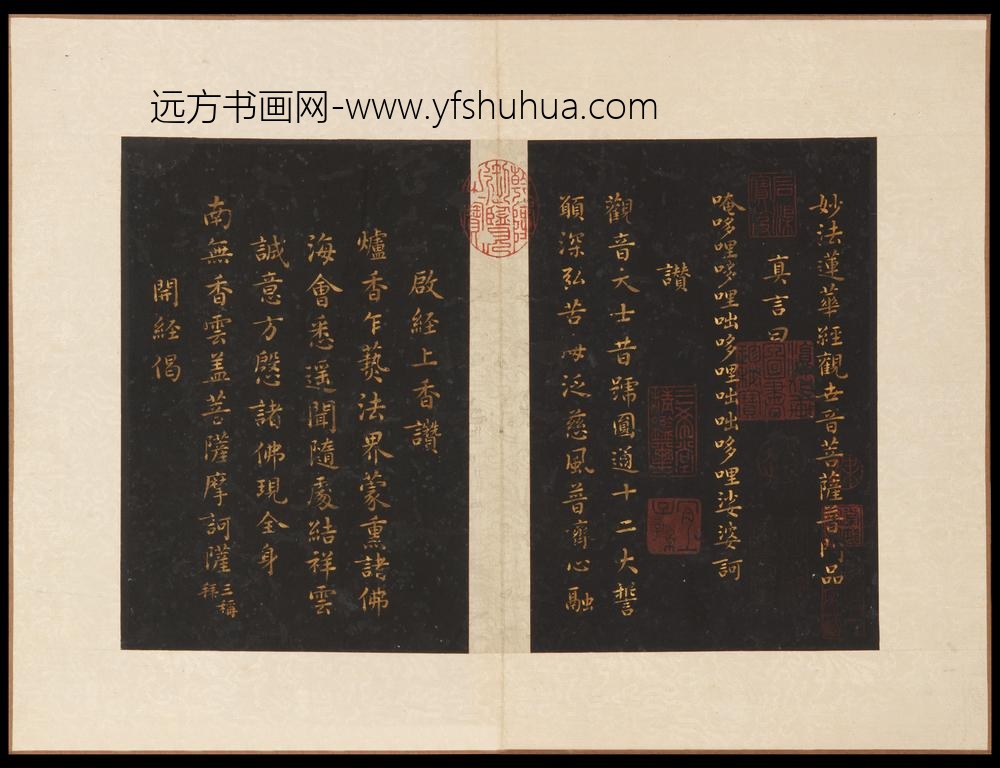 远方书画网-www.yfshuhua.com
妙法蓮華經觀世音菩薩普門品
真言曰
唵哆哩哆哩咄哆哩咄咄哆哩娑婆訶
讃
觀音大士昔號圓通十二大誓
願深弘苦海泛慈風普齊心融
啟經上香讚
爐香乍爇法界蒙熏諸佛
海會悉遥聞隨處結祥雲
誠意方慇諸佛現全身
南無香雲盖菩薩摩訶薩 三稱
開經偈